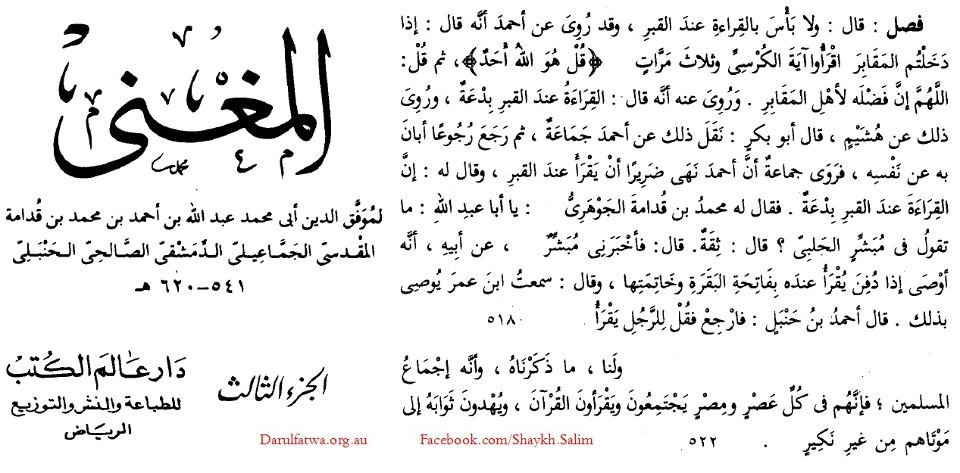 المغنى
لمُوَفَّق الدين أبى محمد عبد الله بن أحمد بن محمد بن قُدامة
المقدسىّ الجَمَّاعيلىّ الدِّمَشْقىّ الصَّالحىّ الحَنْبَلىّ
٥٤١ - ٦٢٠ هـ
الجزء الثالث
دَار عَالم الكتب
للطباعة والنشر والتوزيع
الرياض
فصل : قال : ولا بَأْسَ بالقِراءةِ عندَ القبرِ ، وقد رُوِىَ عن أحمدَ أنَّه قال : إذا
دَخَلْتُم المَقابِرَ اقْرَأُوا آيَةَ الكُرْسِىِّ وثلاثَ مَرَّاتٍ ﴿قُلْ هُوَ اللهُ أَحَدٌ﴾ ، ثم قُلْ :
اللَّهُمَّ إنَّ فَضْلَه لأهْلِ المَقابِرِ . وَرُوِىَ عنه أنَّه قال : القِرَاءَةُ عندَ القبرِ بِدْعَةٌ ، ورُوِىَ
ذلك عن هُشَيْمٍ ، قال أبو بكرٍ : نَقَلَ ذلك عن أحمدَ جَمَاعَةٌ ، ثم رَجَعَ رُجُوعًا أبانَ
به عن نَفْسِه ، فرَوَى جماعةٌ أنَّ أحمدَ نَهَى ضَرِيرًا أنْ يَقْرَأَ عندَ القبرِ ، وقال له : إنَّ
القِرَاءَةَ عندَ القبرِ بِدْعَةٌ . فقال له محمدُ بن قُدامةَ الجَوْهَرِىُّ : يا أبا عبدِ اللهِ : ما
تقولُ فى مُبَشِّرٍ الحَلَبِىِّ ؟ قال : ثِقَةٌ. قال : فأخْبَرَنِى مُبَشِّرٌ ، عن أبِيهِ ، أنَّه
أوْصَى إذا دُفِنَ يُقْرَأُ عندَه بِفَاتِحَةِ البَقَرَةِ وخَاتِمَتِها ، وقال : سمعتُ ابنَ عمرَ يُوصِى
بذلك . قال أحمدُ بنُ حَنْبَلٍ : فارْجِعْ فقُلْ لِلرَّجُلِ يَقْرَأُ ٥١٨
ولَنا ، ما ذَكَرْنَاهُ ، وأنَّه إجْمَاعُ
المسلمين ؛ فإنَّهُم فى كُلِّ عَصْرٍ ومِصْرٍ يَجْتَمِعُونَ ويَقْرَأونَ القُرْآنَ ، ويُهْدُونَ ثَوَابَهُ إلى
مَوْتَاهم مِن غيرِ نَكِيرٍ . ٥٢٢
Darulfatwa.org.au Facebook.com/Shaykh.Salim